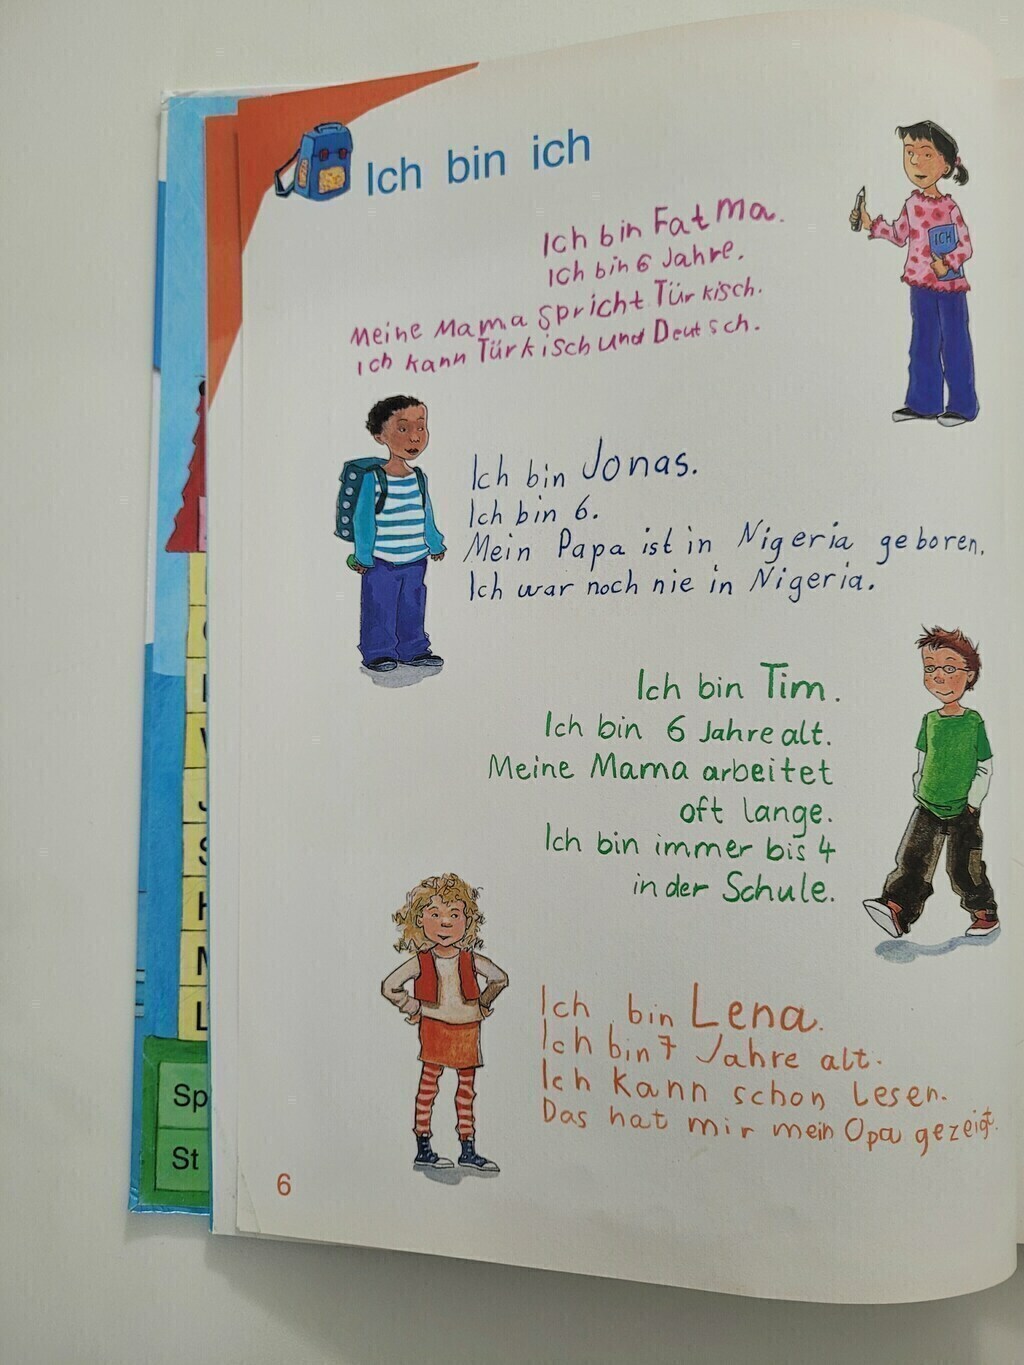 Ich bin ich
Ich bin Fatma.
Ich bin 6 Jahre.
Meine Mama spricht Türkisch.
Ich kann Türkisch und Deutsch.
ICH
Ich bin Jonas.
Ich bin 6.
Mein Papa ist in Nigeria geboren.
Ich war noch nie in Nigeria.
Ich bin Tim.
Ich bin 6 Jahre alt.
Meine Mama arbeitet
oft lange.
Ich bin immer bis 4
in der Schule.
Ich bin Lena.
Ich bin 7 Jahre alt.
Ich kann schon Lesen.
Das hat mir mein Opa gezeigt.
6
Sp
St